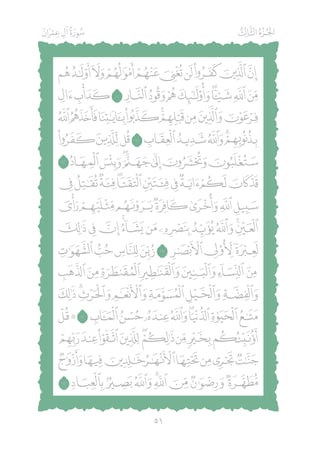 الجُزْءُ الثَّالِثُ سُورَةُ آلِ عِمْرَانَ
إِنَّ ٱلَّذِينَ كَفَرُوا۟ لَن تُغْنِىَ عَنْهُمْ أَمْوَٰلُهُمْ وَلَآ أَوْلَٰدُهُم
مِّنَ ٱللَّهِ شَيْـًٔا وَأُو۟لَٰٓئِكَ هُمْ وَقُودُ ٱلنَّارِ ۝ كَدَأْبِ ءَالِ
فِرْعَوْنَ وَٱلَّذِينَ مِن قَبْلِهِمْ كَذَّبُوا۟ بِـَٔايَٰتِنَا فَأَخَذَهُمُ ٱللَّهُ
بِذُنُوبِهِمْ وَٱللَّهُ شَدِيدُ ٱلْعِقَابِ ۝ قُل لِّلَّذِينَ كَفَرُوا۟
سَتُغْلَبُونَ وَتُحْشَرُونَ إِلَىٰ جَهَنَّمَ وَبِئْسَ ٱلْمِهَادُ ۝
قَدْ كَانَ لَكُمْ ءَايَةٌ فِى فِئَتَيْنِ ٱلْتَقَتَا فِئَةٌ تُقَٰتِلُ فِى
سَبِيلِ ٱللَّهِ وَأُخْرَىٰ كَافِرَةٌ يَرَوْنَهُم مِّثْلَيْهِمْ رَأْىَ
ٱلْعَيْنِ وَٱللَّهُ يُؤَيِّدُ بِنَصْرِهِۦ مَن يَشَآءُ إِنَّ فِى ذَٰلِكَ
لَعِبْرَةً لِّأُو۟لِى ٱلْأَبْصَٰرِ ۝ زُيِّنَ لِلنَّاسِ حُبُّ ٱلشَّهَوَٰتِ
مِنَ ٱلنِّسَآءِ وَٱلْبَنِينَ وَٱلْقَنَٰطِيرِ ٱلْمُقَنطَرَةِ مِنَ ٱلذَّهَبِ
وَٱلْفِضَّةِ وَٱلْخَيْلِ ٱلْمُسَوَّمَةِ وَٱلْأَنْعَٰمِ وَٱلْحَرْثِ ذَٰلِكَ
مَتَٰعُ ٱلْحَيَوٰةِ ٱلدُّنْيَا وَٱللَّهُ عِندَهُۥ حُسْنُ ٱلْمَـَٔابِ ۝ ۞ قُلْ
أَؤُنَبِّئُكُم بِخَيْرٍ مِّن ذَٰلِكُمْ لِلَّذِينَ ٱتَّقَوْا۟ عِندَ رَبِّهِمْ
جَنَّٰتٌ تَجْرِى مِن تَحْتِهَا ٱلْأَنْهَٰرُ خَٰلِدِينَ فِيهَا وَأَزْوَٰجٌ
مُّطَهَّرَةٌ وَرِضْوَٰنٌ مِّنَ ٱللَّهِ وَٱللَّهُ بَصِيرٌۢ بِٱلْعِبَادِ ۝
٥١